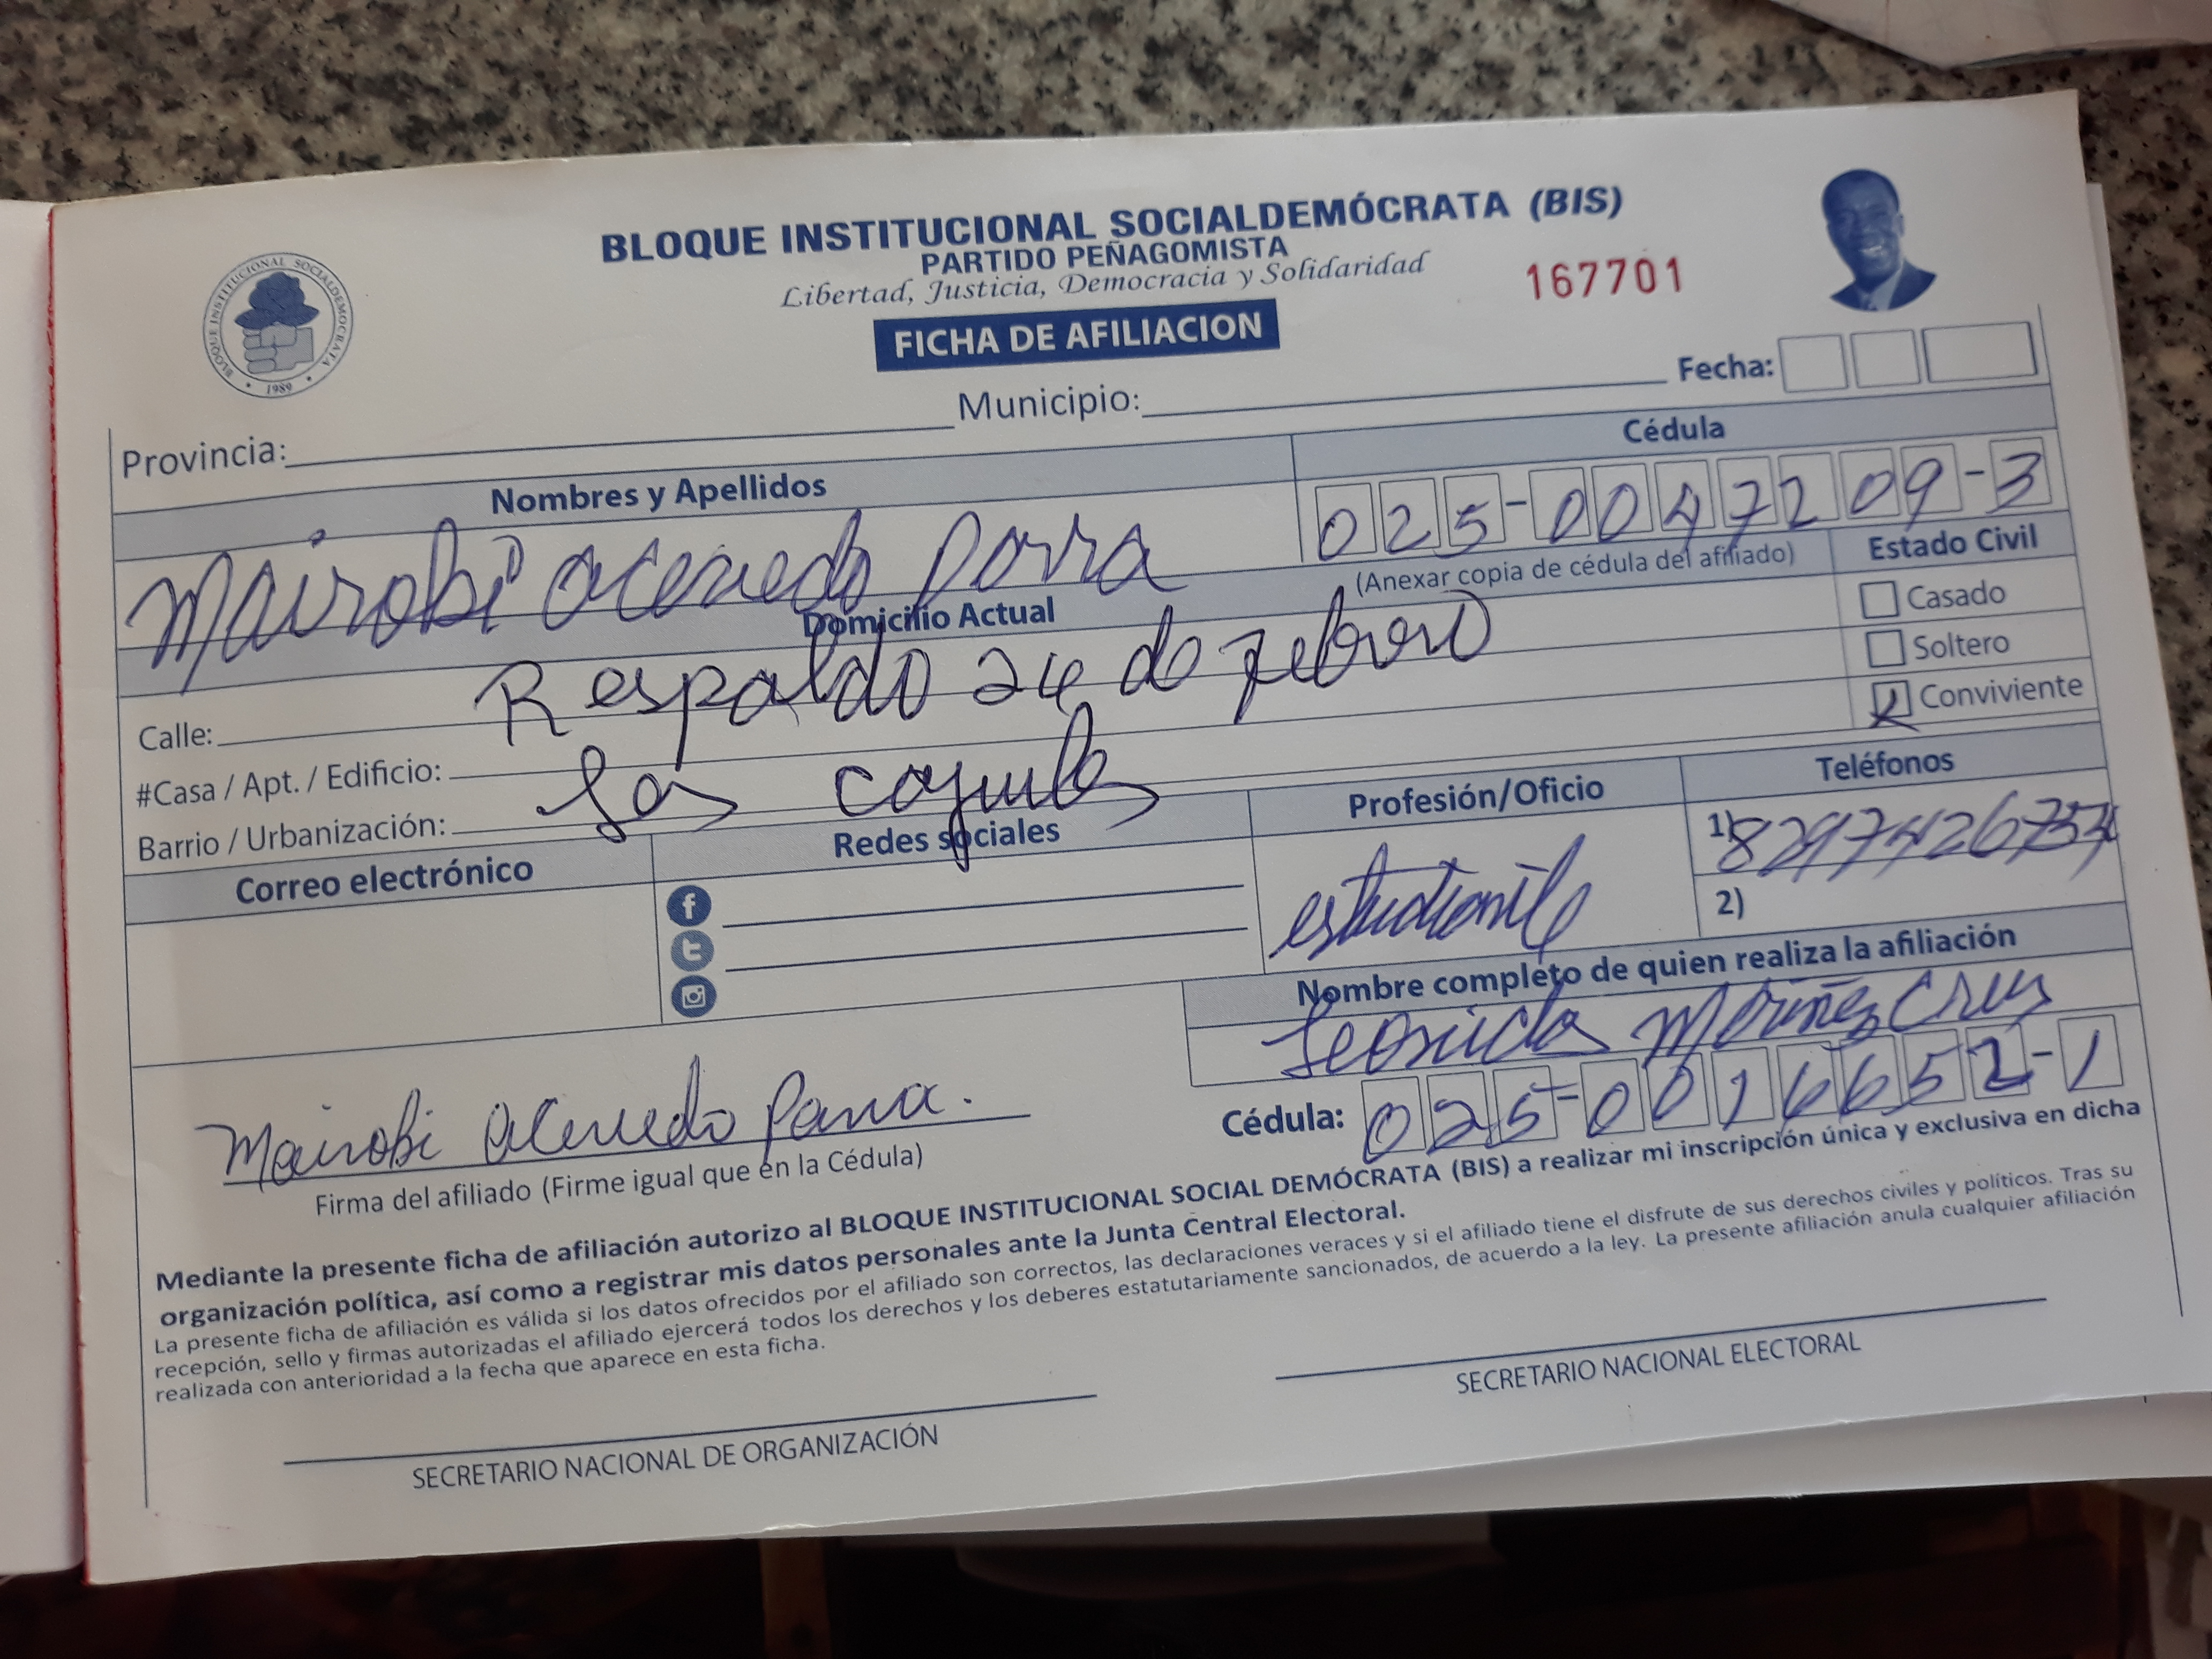 BLOQUE INSTITUCIONAL SOCIALDEMÓCRATA (BIS)
PARTIDO PEÑAGOMISTA
Libertad, Justicia, Democracia y Solidaridad
167701
FICHA DE AFILIACION
BLOQUE INSTITUCIONAL SOCIALDEMOCRATA
1989
Fecha:
Provincia: Municipio:
Nombres y Apellidos
Cédula
Mairobi acevedo Parra
025-0047209-3
(Anexar copia de cédula del afiliado)
Estado Civil
Casado
Soltero
Conviviente
Domicilio Actual
Calle: Respaldo 24 de febrero
#Casa / Apt. / Edificio:
Barrio / Urbanización: Los
Correo electrónico
Redes sociales
Profesión/Oficio
estudiante
Teléfonos
1) 829742
2)
Nombre completo de quien realiza la afiliación
Cruz
Cédula: 025-0016652-1
Mairobi acevedo Parra.
Firma del afiliado (Firme igual que en la Cédula)
Mediante la presente ficha de afiliación autorizo al BLOQUE INSTITUCIONAL SOCIAL DEMÓCRATA (BIS) a realizar mi inscripción única y exclusiva en dicha
organización política, así como a registrar mis datos personales ante la Junta Central Electoral.
La presente ficha de afiliación es válida si los datos ofrecidos por el afiliado son correctos, las declaraciones veraces y si el afiliado tiene el disfrute de sus derechos civiles y políticos. Tras su
recepción, sello y firmas autorizadas el afiliado ejercerá todos los derechos y los deberes estatutariamente sancionados, de acuerdo a la ley. La presente afiliación anula cualquier afiliación
realizada con anterioridad a la fecha que aparece en esta ficha.
SECRETARIO NACIONAL DE ORGANIZACIÓN
SECRETARIO NACIONAL ELECTORAL